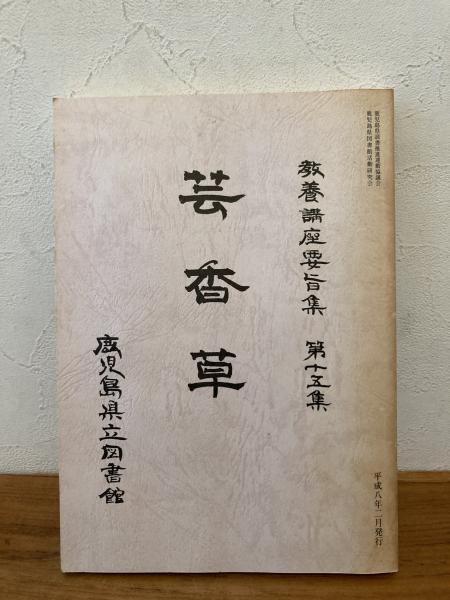 鹿児島県読書推進運動協議会
鹿児島県図書館活動研究会
教養講座要旨集　第十五集
芸香草
鹿児島県立図書館
平成八年二月発行